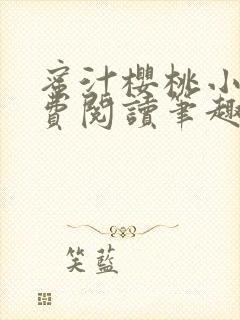 蜜汁櫻桃小
費閱讀筆趣
笑藍